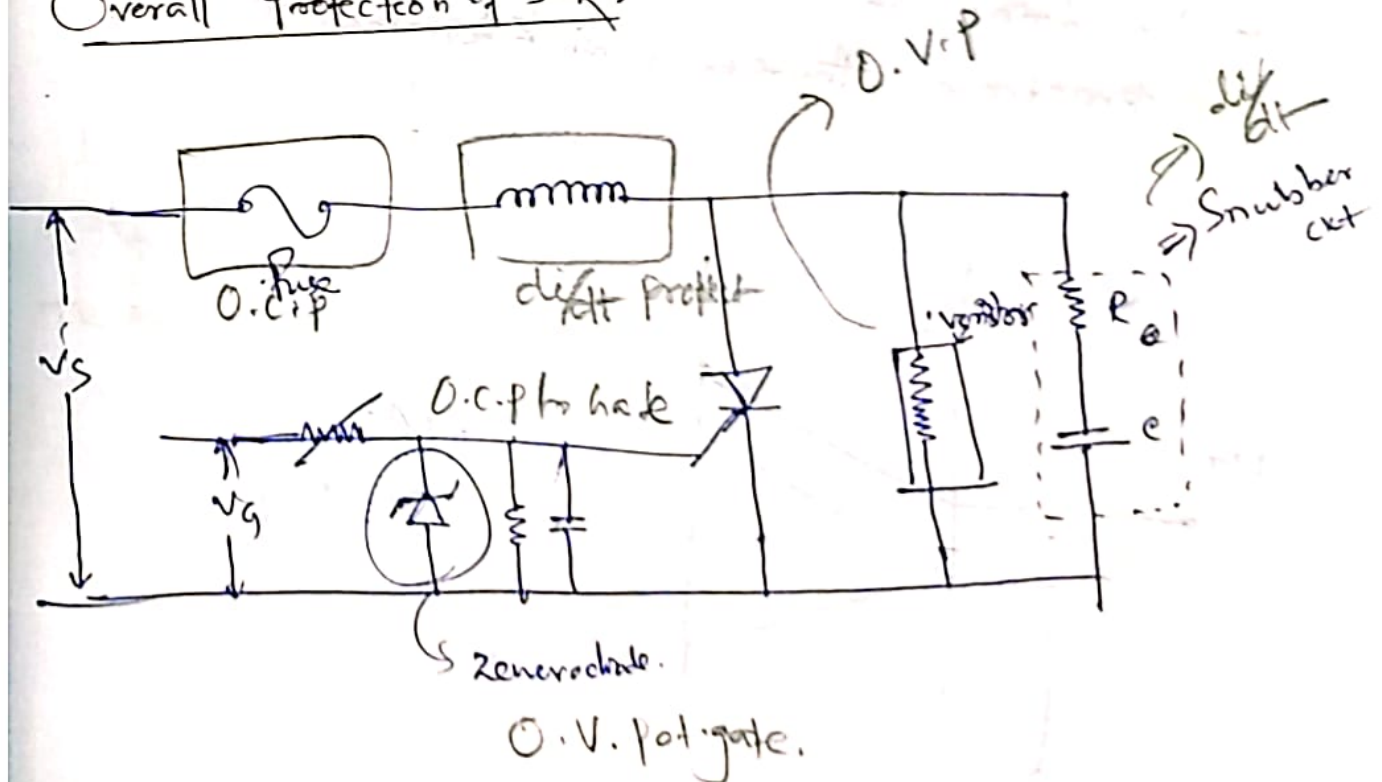 Overall Protection of
O.V.P
di/dt
Snubber
ckt
fuse
O.C.P
di/dt protect
varistor
R
C
Vs
O.C.P to Gate
VG
Zenerdiode.
O.V. pot. gate.